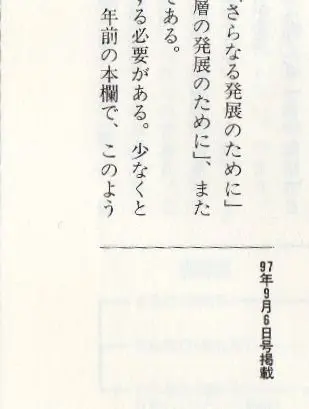 「さらなる発展のために」
層の発展のために」、また
である。
する必要がある。少なくと
年前の本欄で、このよう
97年9月6日号掲載